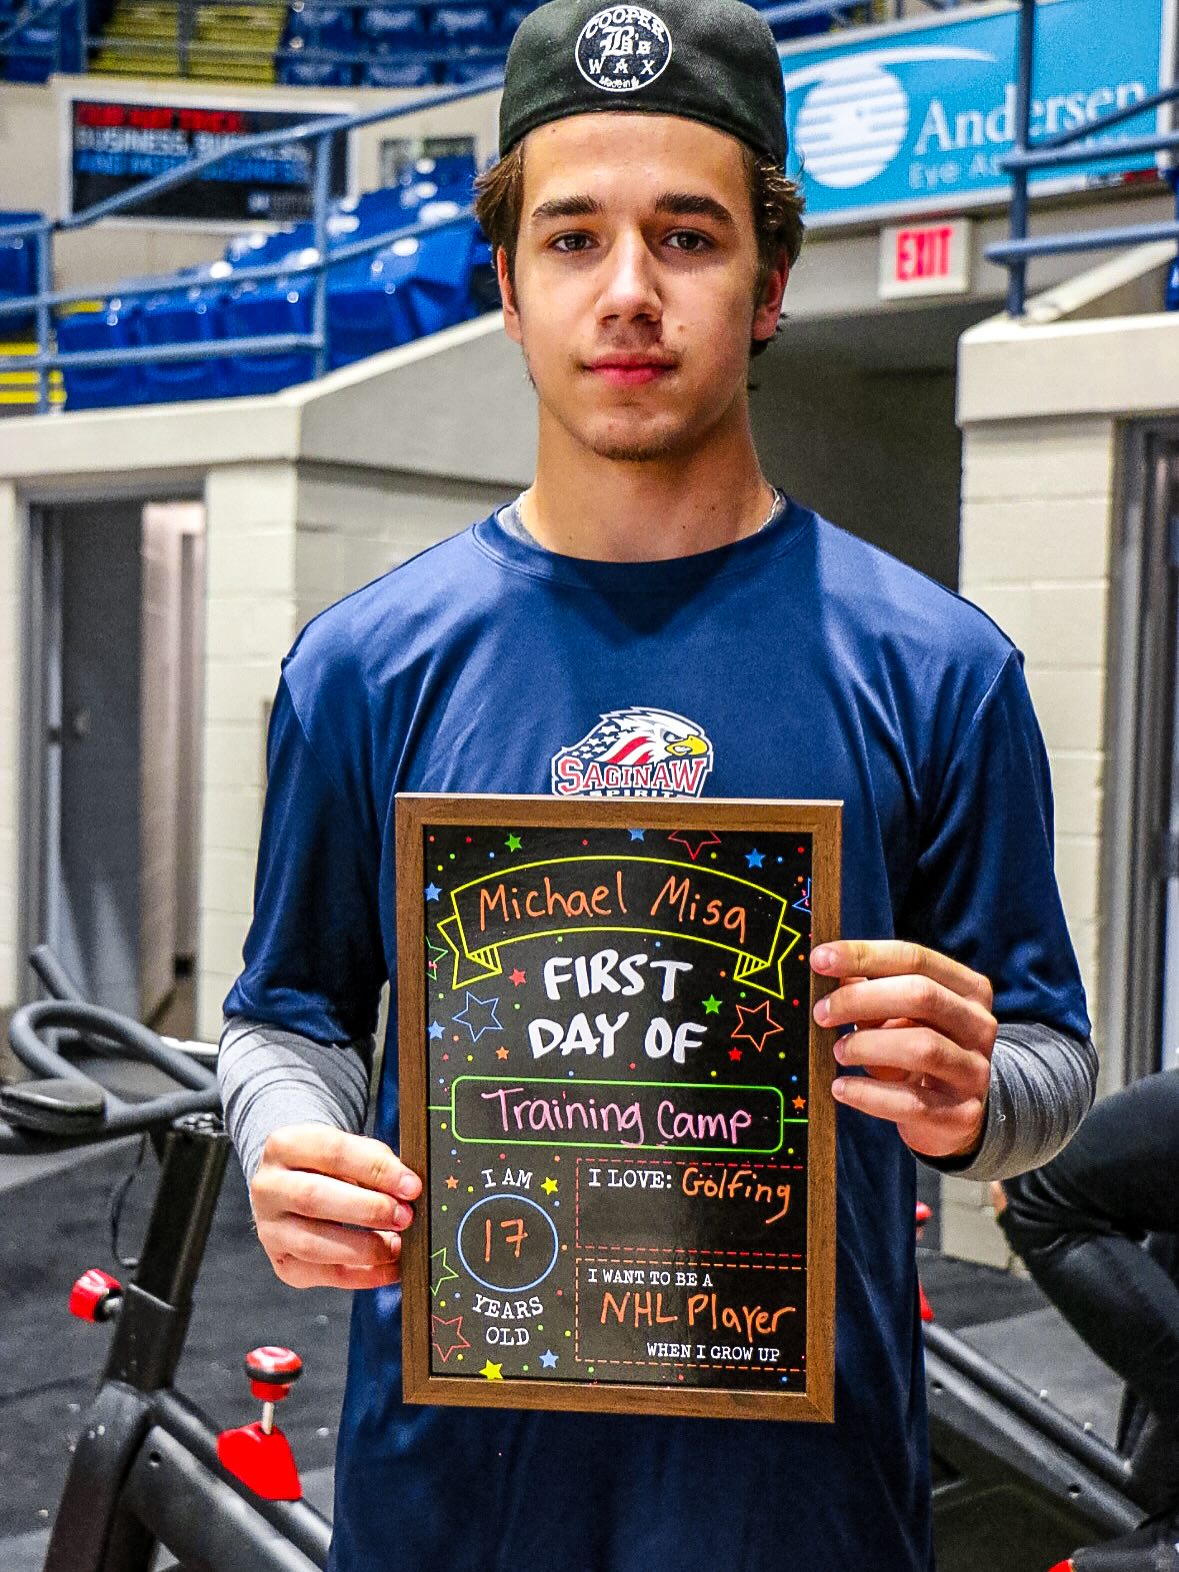 COOPER
B's
WAX
Made in
Andersen
Eye
EXIT
SAGINAW
SPIRIT
Michael Misa
FIRST
DAY OF
Training Camp
I AM
17
YEARS
OLD
I LOVE: Golfing
I WANT TO BE A
NHL Player
WHEN I GROW UP